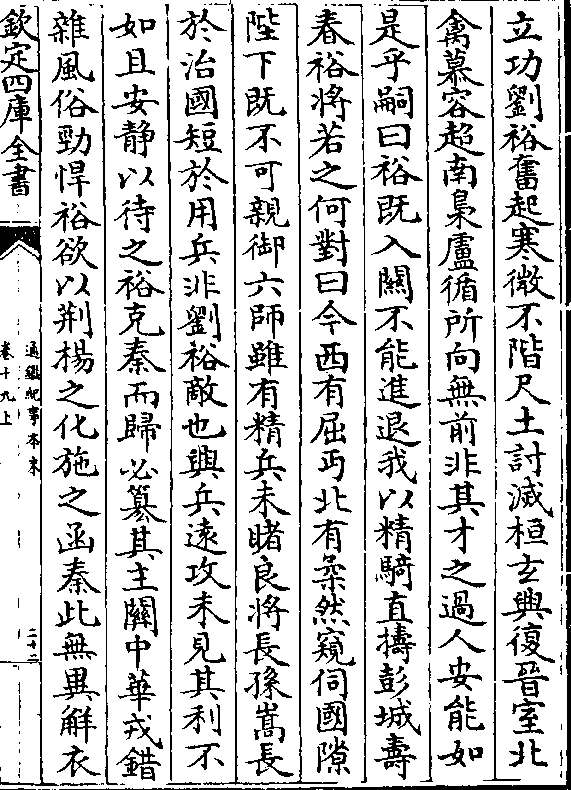 立功劉裕奮起寒微不階尺土討滅桓玄興復晉室北
禽慕容超南梟盧循所向無前非其才之過人安能如
是乎嗣曰裕既入關不能進退我以精騎直擣彭城壽
春裕將若之何對曰今西有屈丐北有柔然窺伺國隙
陛下既不可親御六師雖有精兵未睹良將長孫嵩長
於治國短於用兵非劉裕敵也興兵遠攻未見其利不
如且安静以待之裕克秦而歸必簒其主關中華戎錯
雜風俗勁悍裕欲以荆楊之化施之函秦此無異解衣
欽定四庫全書
通鑑紀事本末
卷十九上
二十二